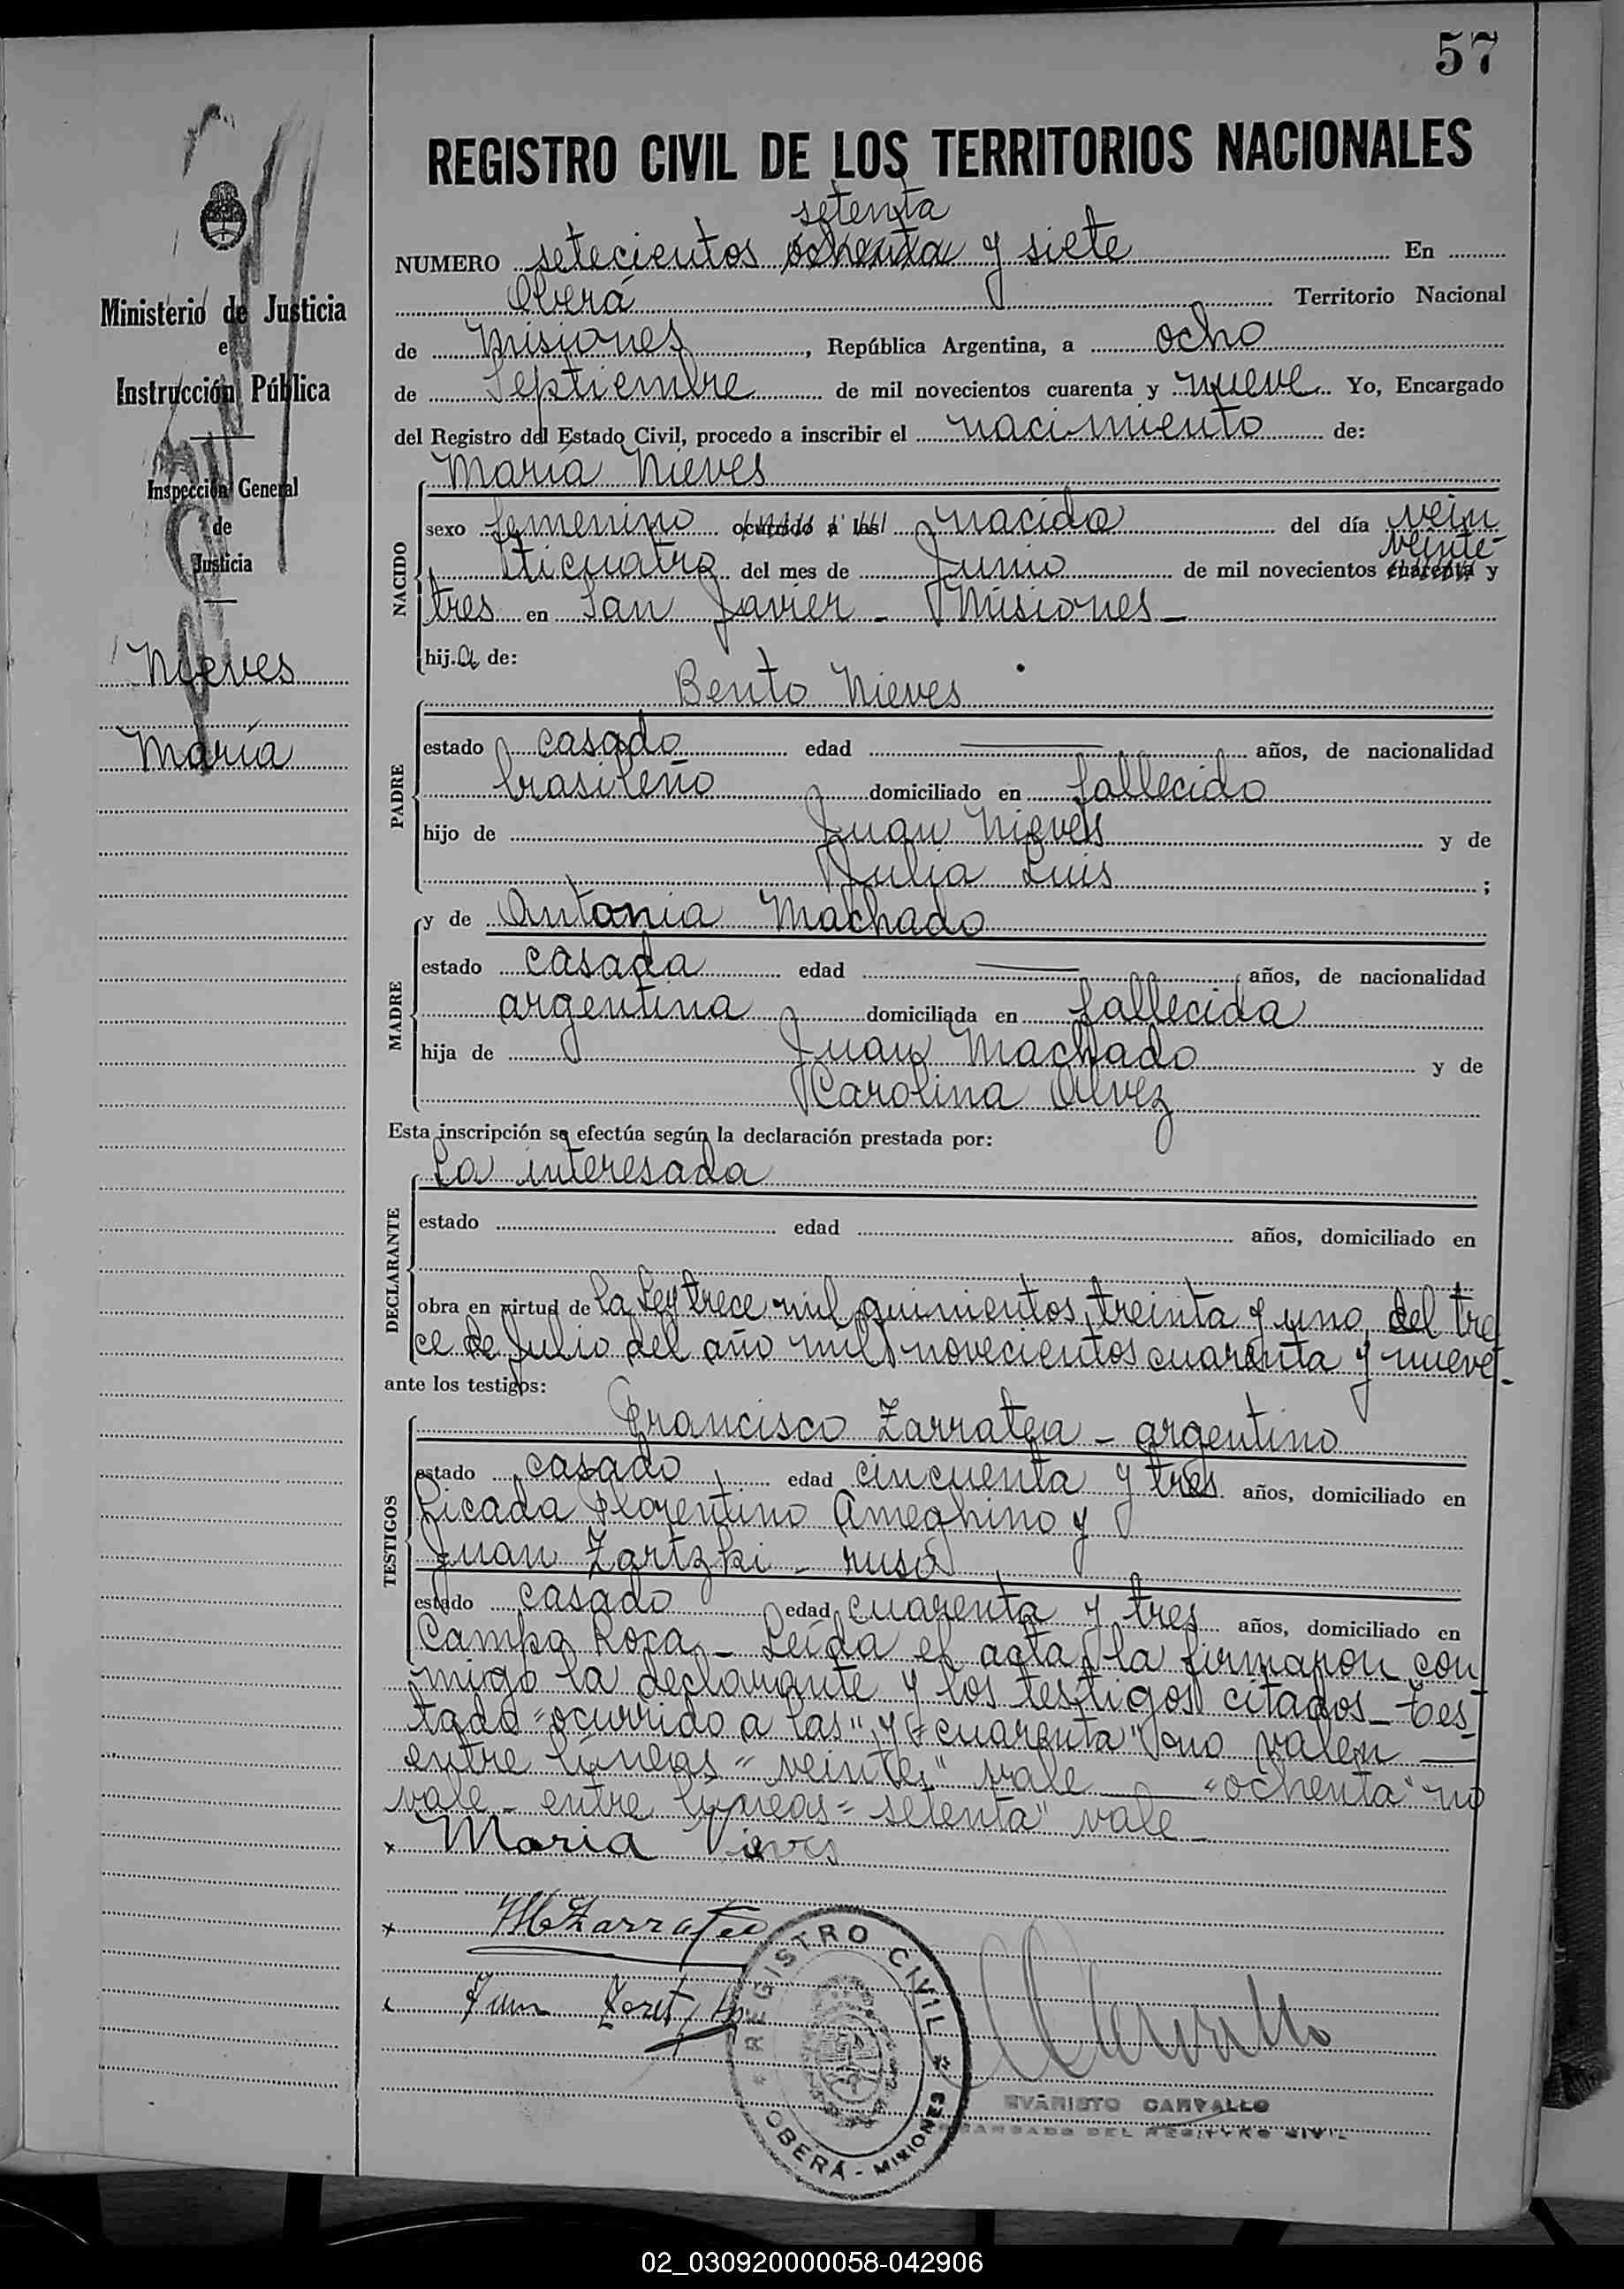 57
REGISTRO CIVIL DE LOS TERRITORIOS NACIONALES
setenta
NUMERO setecientos ochenta y siete En
Oberá Territorio Nacional
de Misiones, República Argentina, a ocho
de Septiembre de mil novecientos cuarenta y nueve Yo, Encargado
del Registro del Estado Civil, procedo a inscribir el nacimiento de:
Ministerio de Justicia
e
Instrucción Pública
Inspección General
de
Justicia
Nieves
María
NACIDO
María Nieves
sexo femenino ocurrido a las nacida del día vein
veinte
ticuatro del mes de Junio de mil novecientos cuarenta y
tres en San Javier - Misiones -
hija de:
PADRE
Bento Nieves
estado casado edad años, de nacionalidad
brasileño domiciliado en fallecido
hijo de Juan Nieves y de
Julia Luis ;
MADRE
y de Antonia Machado
estado casada edad años, de nacionalidad
argentina domiciliada en fallecida
hija de Juan Machado y de
Carolina Alvez
Esta inscripción se efectúa según la declaración prestada por:
DECLARANTE
La interesada
estado edad años, domiciliado en
obra en virtud de la Ley trece mil quinientos treinta y uno, del tre
ce de Julio del año mil novecientos cuarenta y nueve -
ante los testigos:
TESTIGOS
Francisco Zarratea - argentino
estado casado edad cincuenta y tres años, domiciliado en
Picada Florentino Ameghino y
Juan Zartzki - ruso
estado casado edad cuarenta y tres años, domiciliado en
Campo Roca - Leída el acta, la firmaron con
migo la declarante y los testigos citados - Tes
tado "ocurrido a las" y "cuarenta" no valen —
entre líneas "veinte" vale — "ochenta" no
vale - entre líneas "setenta" vale -
x Maria Nieves
x Zarratea
x Juan
REGISTRO CIVIL
OBERÁ - MISIONES
EVARISTO CARVALLO
ENCARGADO DEL REGISTRO CIVIL
02_030920000058-042906